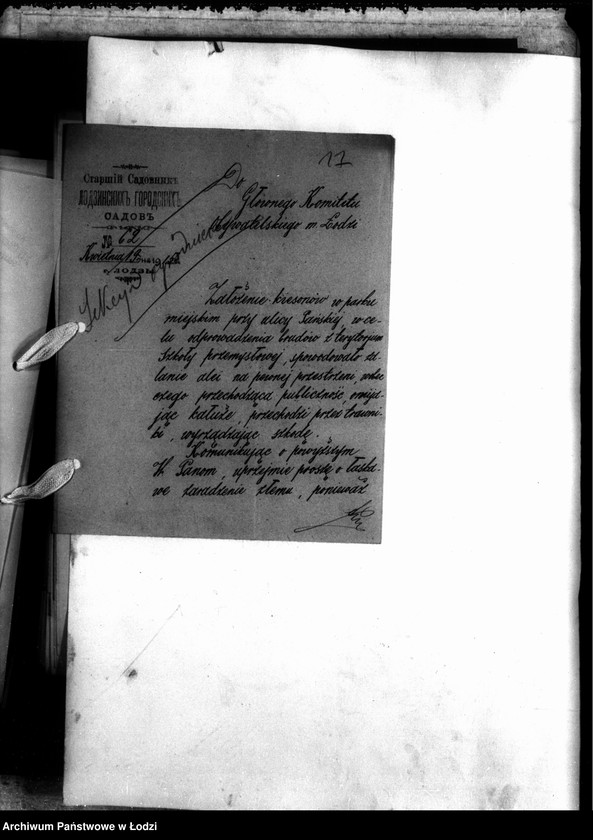 17
Старшій Садовникъ
ЛОДЗИНСКИХЪ ГОРОДСКИХЪ
САДОВЪ
№ 62
Kwietnia 19 дня 191
г. ЛОДЗЬ
Do
Głównego Komitetu
Obywatelskiego m. Łodzi
Założenie kresonów w parku
miejskim przy ulicy Pańskiej w ce-
lu odprowadzenia brudów z terytorjum
Szkoły przemysłowej, spowodowało za-
lanie alei na pewnej przestrzeni, wsku-
czego przechodząca publiczność, omija-
jąc kałuże, przechodzi przez trawni-
ki, wyrządzając szkodę.
Komunikując o powyższym
W. Panom, uprzejmie proszę o łaska-
we zaradzenie złemu, ponieważ
Archiwum Państwowe w Łodzi